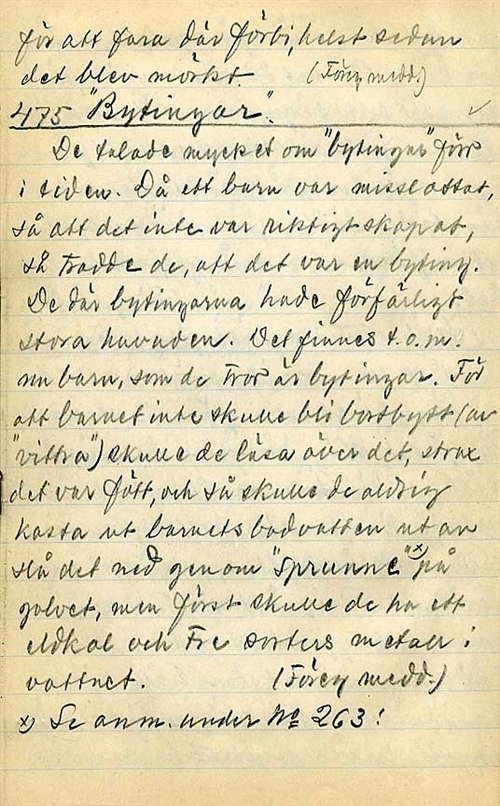 för att fara där förbi, helst sedan
det blev mörkt. (Föreg. medd.)
475 "Bytingar".
De talade mycket om "bytingar" förr
i tiden. Då ett barn var missl
så att det inte var riktigt skapat,
så trodde de, att det var en byting.
De där bytingarna hade förfärligt
stora huvuden. Det finnes t.o.m.
nu barn, som de tror är bytingar. För
att barnet inte skulle bli bortbytt (av
"vittra") skulle de läsa över det, strax
det var fött, och så skulle de aldrig
kasta ut barnets badvatten utan
slå det ned genom "sprunne" x) på
golvet, men först skulle de ha ett
eldkol och tre sorters metall i
vattnet. (Föreg. medd.)
x) Se anm. under No 263!